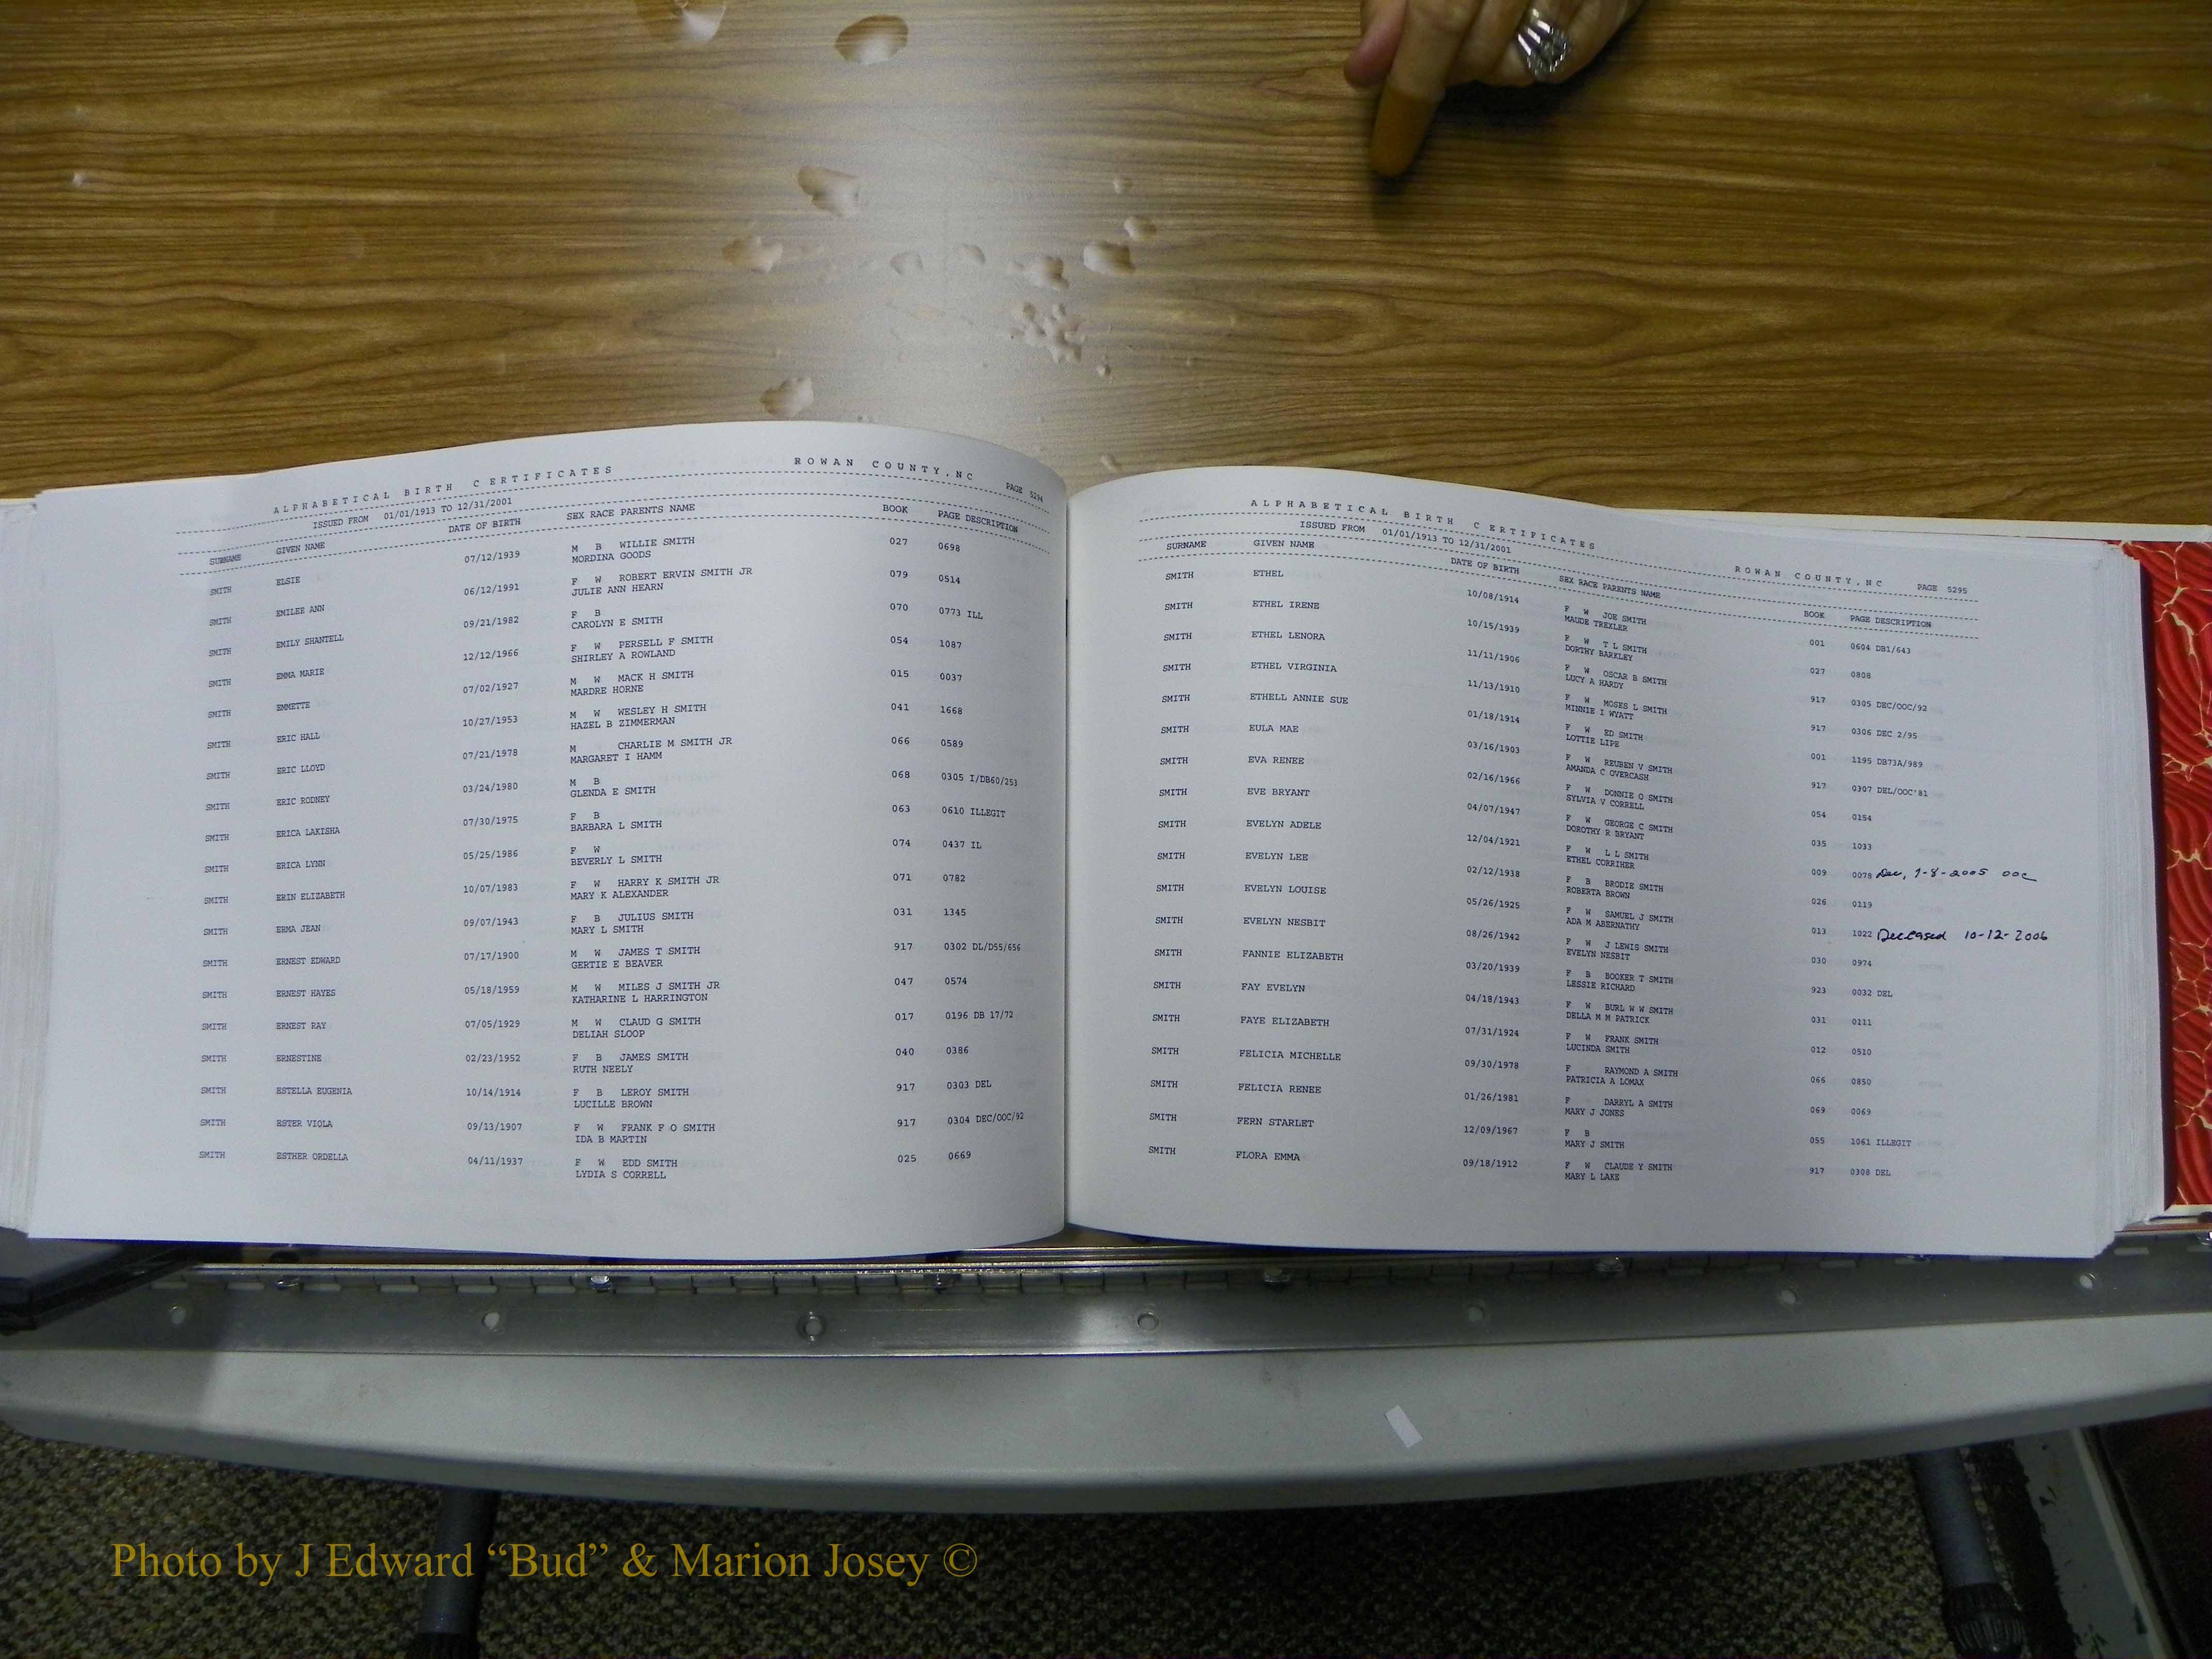 ALPHABETICAL BIRTH CERTIFICATES ROWAN COUNTY,NC PAGE 5294
ISSUED FROM 01/01/1913 TO 12/31/2001
SURNAME GIVEN NAME DATE OF BIRTH SEX RACE PARENTS NAME BOOK PAGE DESCRIPTION
SMITH ELSIE 07/12/1939 M B WILLIE SMITH 027 0698
MORDINA GOODS
SMITH EMILEE ANN 06/12/1991 F W ROBERT ERVIN SMITH JR 079 0514
JULIE ANN HEARN
SMITH EMILY SHANTELL 09/21/1982 F B 070 0773 ILL
CAROLYN E SMITH
SMITH EMMA MARIE 12/12/1966 F W PERSELL F SMITH 054 1087
SHIRLEY A ROWLAND
SMITH EMMETTE 07/02/1927 M W MACK H SMITH 015 0037
MARDRE HORNE
SMITH ERIC HALL 10/27/1953 M W WESLEY H SMITH 041 1668
HAZEL B ZIMMERMAN
SMITH ERIC LLOYD 07/21/1978 M CHARLIE M SMITH JR 066 0589
MARGARET I HAMM
SMITH ERIC RODNEY 03/24/1980 M B 068 0305 I/DB60/253
GLENDA E SMITH
SMITH ERICA LAKISHA 07/30/1975 F B 063 0610 ILLEGIT
BARBARA L SMITH
SMITH ERICA LYNN 05/25/1986 F W 074 0437 IL
BEVERLY L SMITH
SMITH ERIN ELIZABETH 10/07/1983 F W HARRY K SMITH JR 071 0782
MARY K ALEXANDER
SMITH ERMA JEAN 09/07/1943 F B JULIUS SMITH 031 1345
MARY L SMITH
SMITH ERNEST EDWARD 07/17/1900 M W JAMES T SMITH 917 0302 DL/D55/656
GERTIE E BEAVER
SMITH ERNEST HAYES 05/18/1959 M W MILES J SMITH JR 047 0574
KATHARINE L HARRINGTON
SMITH ERNEST RAY 07/05/1929 M W CLAUD G SMITH 017 0196 DB 17/72
DELIAH SLOOP
SMITH ERNESTINE 02/23/1952 F B JAMES SMITH 040 0386
RUTH NEELY
SMITH ESTELLA EUGENIA 10/14/1914 F B LEROY SMITH 917 0303 DEL
LUCILLE BROWN
SMITH ESTER VIOLA 09/13/1907 F W FRANK F O SMITH 917 0304 DEC/OOC/92
IDA B MARTIN
SMITH ESTHER ORDELLA 04/11/1937 F W EDD SMITH 025 0669
LYDIA S CORRELL
ALPHABETICAL BIRTH CERTIFICATES ROWAN COUNTY,NC PAGE 5295
ISSUED FROM 01/01/1913 TO 12/31/2001
SURNAME GIVEN NAME DATE OF BIRTH SEX RACE PARENTS NAME BOOK PAGE DESCRIPTION
SMITH ETHEL 10/08/1914 F W JOE SMITH 001 0604 DB1/643
MAUDE TREXLER
SMITH ETHEL IRENE 10/15/1939 F W T L SMITH 027 0808
DORTHY BARKLEY
SMITH ETHEL LENORA 11/11/1906 F W OSCAR B SMITH 917 0305 DEC/OOC/92
LUCY A HARDY
SMITH ETHEL VIRGINIA 11/13/1910 F W MOSES L SMITH 917 0306 DEC 2/95
MINNIE I WYATT
SMITH ETHELL ANNIE SUE 01/18/1914 F W ED SMITH 001 1195 DB73A/989
LOTTIE LIPE
SMITH EULA MAE 03/16/1903 F W REUBEN V SMITH 917 0307 DEL/OOC'81
AMANDA C OVERCASH
SMITH EVA RENEE 02/16/1966 F W DONNIE O SMITH 054 0154
SYLVIA V CORRELL
SMITH EVE BRYANT 04/07/1947 F W GEORGE C SMITH 035 1033
DOROTHY R BRYANT
SMITH EVELYN ADELE 12/04/1921 F W L L SMITH 009 0078 Dec, 9-8-2005 OOC
ETHEL CORRIHER
SMITH EVELYN LEE 02/12/1938 F B BRODIE SMITH 026 0119
ROBERTA BROWN
SMITH EVELYN LOUISE 05/26/1925 F W SAMUEL J SMITH 013 1022 Deceased 10-12-2006
ADA M ABERNATHY
SMITH EVELYN NESBIT 08/26/1942 F W J LEWIS SMITH 030 0974
EVELYN NESBIT
SMITH FANNIE ELIZABETH 03/20/1939 F B BOOKER T SMITH 923 0032 DEL
LESSIE RICHARD
SMITH FAY EVELYN 04/18/1943 F W BURL W W SMITH 031 0111
DELLA M M PATRICK
SMITH FAYE ELIZABETH 07/31/1924 F W FRANK SMITH 012 0510
LUCINDA SMITH
SMITH FELICIA MICHELLE 09/30/1978 F RAYMOND A SMITH 066 0850
PATRICIA A LOMAX
SMITH FELICIA RENEE 01/26/1981 F DARRYL A SMITH 069 0069
MARY J JONES
SMITH FERN STARLET 12/09/1967 F B 055 1061 ILLEGIT
MARY J SMITH
SMITH FLORA EMMA 09/18/1912 F W CLAUDE Y SMITH 917 0308 DEL
MARY L LAKE
Photo by J Edward “Bud” & Marion Josey ©